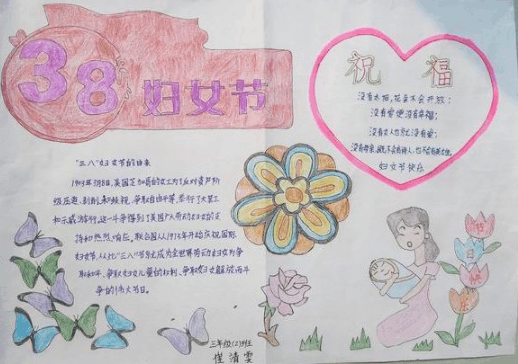 38 妇女节
祝福
没有太阳,花朵不会开放;
没有爱便没有幸福;
没有女人也就没有爱;
没有母亲,既不会有诗人,也不会有英雄
妇女节快乐
"三八"妇女节的由来
1909年3月8日,美国芝加哥的女工为了反对资产阶
级压迫、剥削和歧视,争取自由平等,举行了大罢工
和示威游行,这一斗争得到了美国广大劳动妇女的支
持和热烈响应,联合国从1975年开始庆祝国际
妇女节,从此"三八"节成为全世界劳动妇女为争
取和平、争取妇女儿童的权利、争取妇女解放而斗
争的伟大节日。
三年级(2)班
清雯